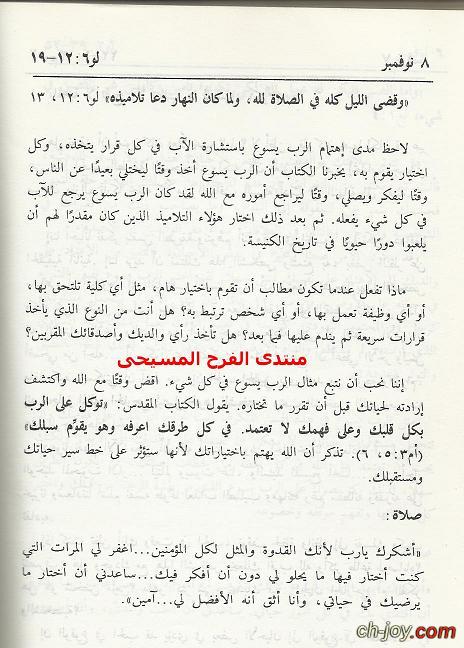 ٨ نوفمبر لو٦: ١٢-١٩
«وقضى الليل كله في الصلاة لله، ولما كان النهار دعا تلاميذه» لو٦: ١٢، ١٣
لاحظ مدى إهتمام الرب يسوع باستشارة الآب في كل قرار يتخذه، وكل
اختيار يقوم به، يخبرنا الكتاب أن الرب يسوع أخذ وقتًا ليختلي بعيدًا عن الناس،
وقتًا ليفكر ويصلي، وقتًا ليراجع أموره مع الله لقد كان الرب يسوع يرجع للآب
في كل شيء يفعله. ثم بعد ذلك اختار هؤلاء التلاميذ الذين كان مقدرًا لهم أن
يلعبوا دورًا حيويًا في تاريخ الكنيسة.
ماذا تفعل عندما تكون مطالب أن تقوم باختيار هام، مثل أي كلية تلتحق بها،
أو أي وظيفة تعمل بها، أو أي شخص ترتبط به؟ هل أنت من النوع الذي يأخذ
قرارات سريعة ثم يندم عليها فيما بعد؟ هل تأخذ رأي والديك وأصدقائك المقربين؟
منتدى الفرح المسيحى
إننا نحب أن نتبع مثال الرب يسوع في كل شيء. اقض وقتًا مع الله واكتشف
إرادته لحياتك قبل أن تقرر ما تختاره. يقول الكتاب المقدس: «توكل على الرب
بكل قلبك وعلى فهمك لا تعتمد. في كل طرقك اعرفه وهو يقوِّم سبلك»
(أم٣: ٥، ٦). تذكر أن الله يهتم باختياراتك لأنها ستؤثر على خط سير حياتك
ومستقبلك.
صلاة:
«أشكرك يارب لأنك القدوة والمثل لكل المؤمنين...اغفر لي المرات التي
كنت أختار فيها ما يحلو لي دون أن أفكر فيك...ساعدني أن أختار ما
يرضيك في حياتي، وأنا أثق أنه الأفضل لي...آمين».
ch-joy.com